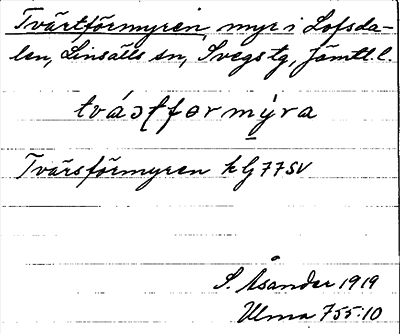 Tvärtförmyren, myr i Lofsda-
len, Linsälls sn, Svegs tg, Jämtl. l.
Tvärsförmyren k G 77 SV
S. Åsander 1919
Ulma 755:10